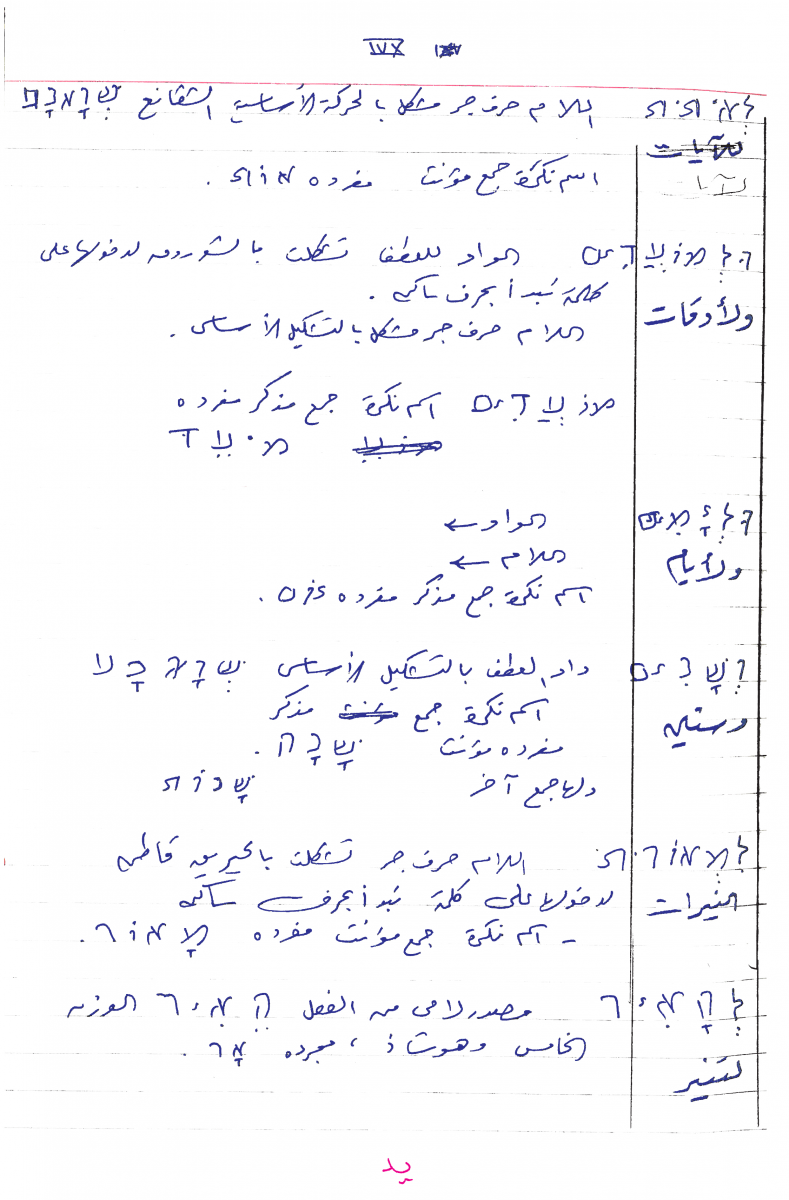 XIV
לְאֹתֹת اللام حرف جر مشكلة بالحركة الأساسية
للآيات
لآيا
اسم نكرة جمع مؤنث مفرده אוֹת .
וּלְמוֹעֲדִים الواو للعطف تشكلت بالشوروق لدخولها على
ولأوقات كلمة تبدأ بحرف ساكن .
اللام حرف جر مشكلة بالتشكيل الأساسى .
מוֹעֲדִים اسم نكرة جمع مذكر مفرده
מוֹעֵד
וּלְיָמִים الواو ←
ولأيام اللام ←
اسم نكرة جمع مذكر مفرده יום .
וְשָׁנִים واو العطف بالتشكيل الأساسى
وسنين اسم نكرة جمع مؤنث مذكر
مفرده مؤنث שָׁנָה .
ولها جمع آخر שָׁנוֹת
לִמְאוֹרֹת اللام حرف جر تشكلت بالحيريق قاطان
لنيرات لدخولها على كلمة تبدأ بحرف ساكن
- اسم نكرة جمع مؤنث مفرده מָאוֹר .
לְהָאִיר مصدر لامى من الفعل הֵאִיר الوزن
لتنير الخامس وهو شاذ ، مجرده אָר .
يد